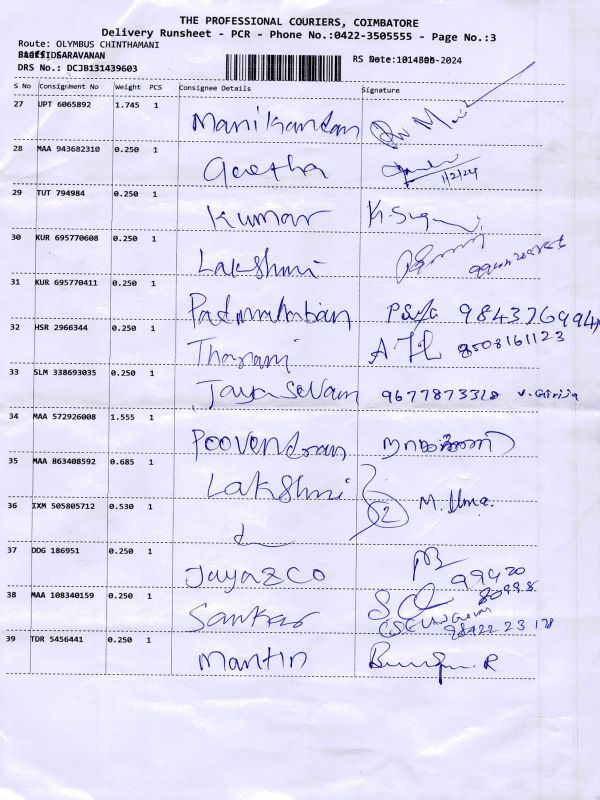 THE PROFESSIONAL COURIERS, COIMBATORE
Delivery Runsheet - PCR - Phone No.:0422-3505555 - Page No.:3
Route: OLYMBUS CHINTHAMANI
SARAVANAN
DRS No.: DCJB131439603
RS Date: -2024
S No Consignment No Weight PCS Consignee Details Signature
27 UPT 6065892 1.745 1 Manikandan
28 MAA 943682310 0.250 1 Geetha 1/2/24
29 TUT 794984 0.250 1 Kumar
30 KUR 695770608 0.250 1 Lakshmi
31 KUR 695770411 0.250 1 Padmanaban 9843769941
32 HSR 2966344 0.250 1 Tharani 9508161123
33 SLM 338693035 0.250 1 Jaya Selvam 9677873328 V. Girija
34 MAA 572926008 1.555 1 Poovendran
35 MAA 863408592 0.685 1 Lakshmi
36 IXM 505805712 0.530 1 2 M. Uma.
37 DDG 186951 0.250 1 Jaya & Co 99420
38 MAA 108340159 0.250 1 Sankar
98422 23 128
39 TDR 5456441 0.250 1 Martin